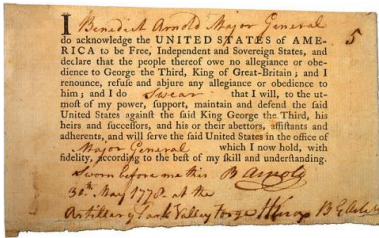 I Benedict Arnold Major General
do acknowledge the UNITED STATES of AME-
RICA to be Free, Independent and Sovereign States, and
declare that the people thereof owe no allegiance or obe-
dience to George the Third, King of Great-Britain; and I
renounce, refuse and abjure any allegiance or obedience to
him; and I do Swear that I will, to the ut-
most of my power, support, maintain and defend the said
United States against the said King George the Third, his
heirs and successors, and his or their abettors, assistants and
adherents, and will serve the said United States in the office of
Major General which I now hold, with
fidelity, according to the best of my skill and understanding.
Sworn before me this B Arnold
30th May 1778 at the
Artillery Park Valley Forge HKnox B G Artil
5